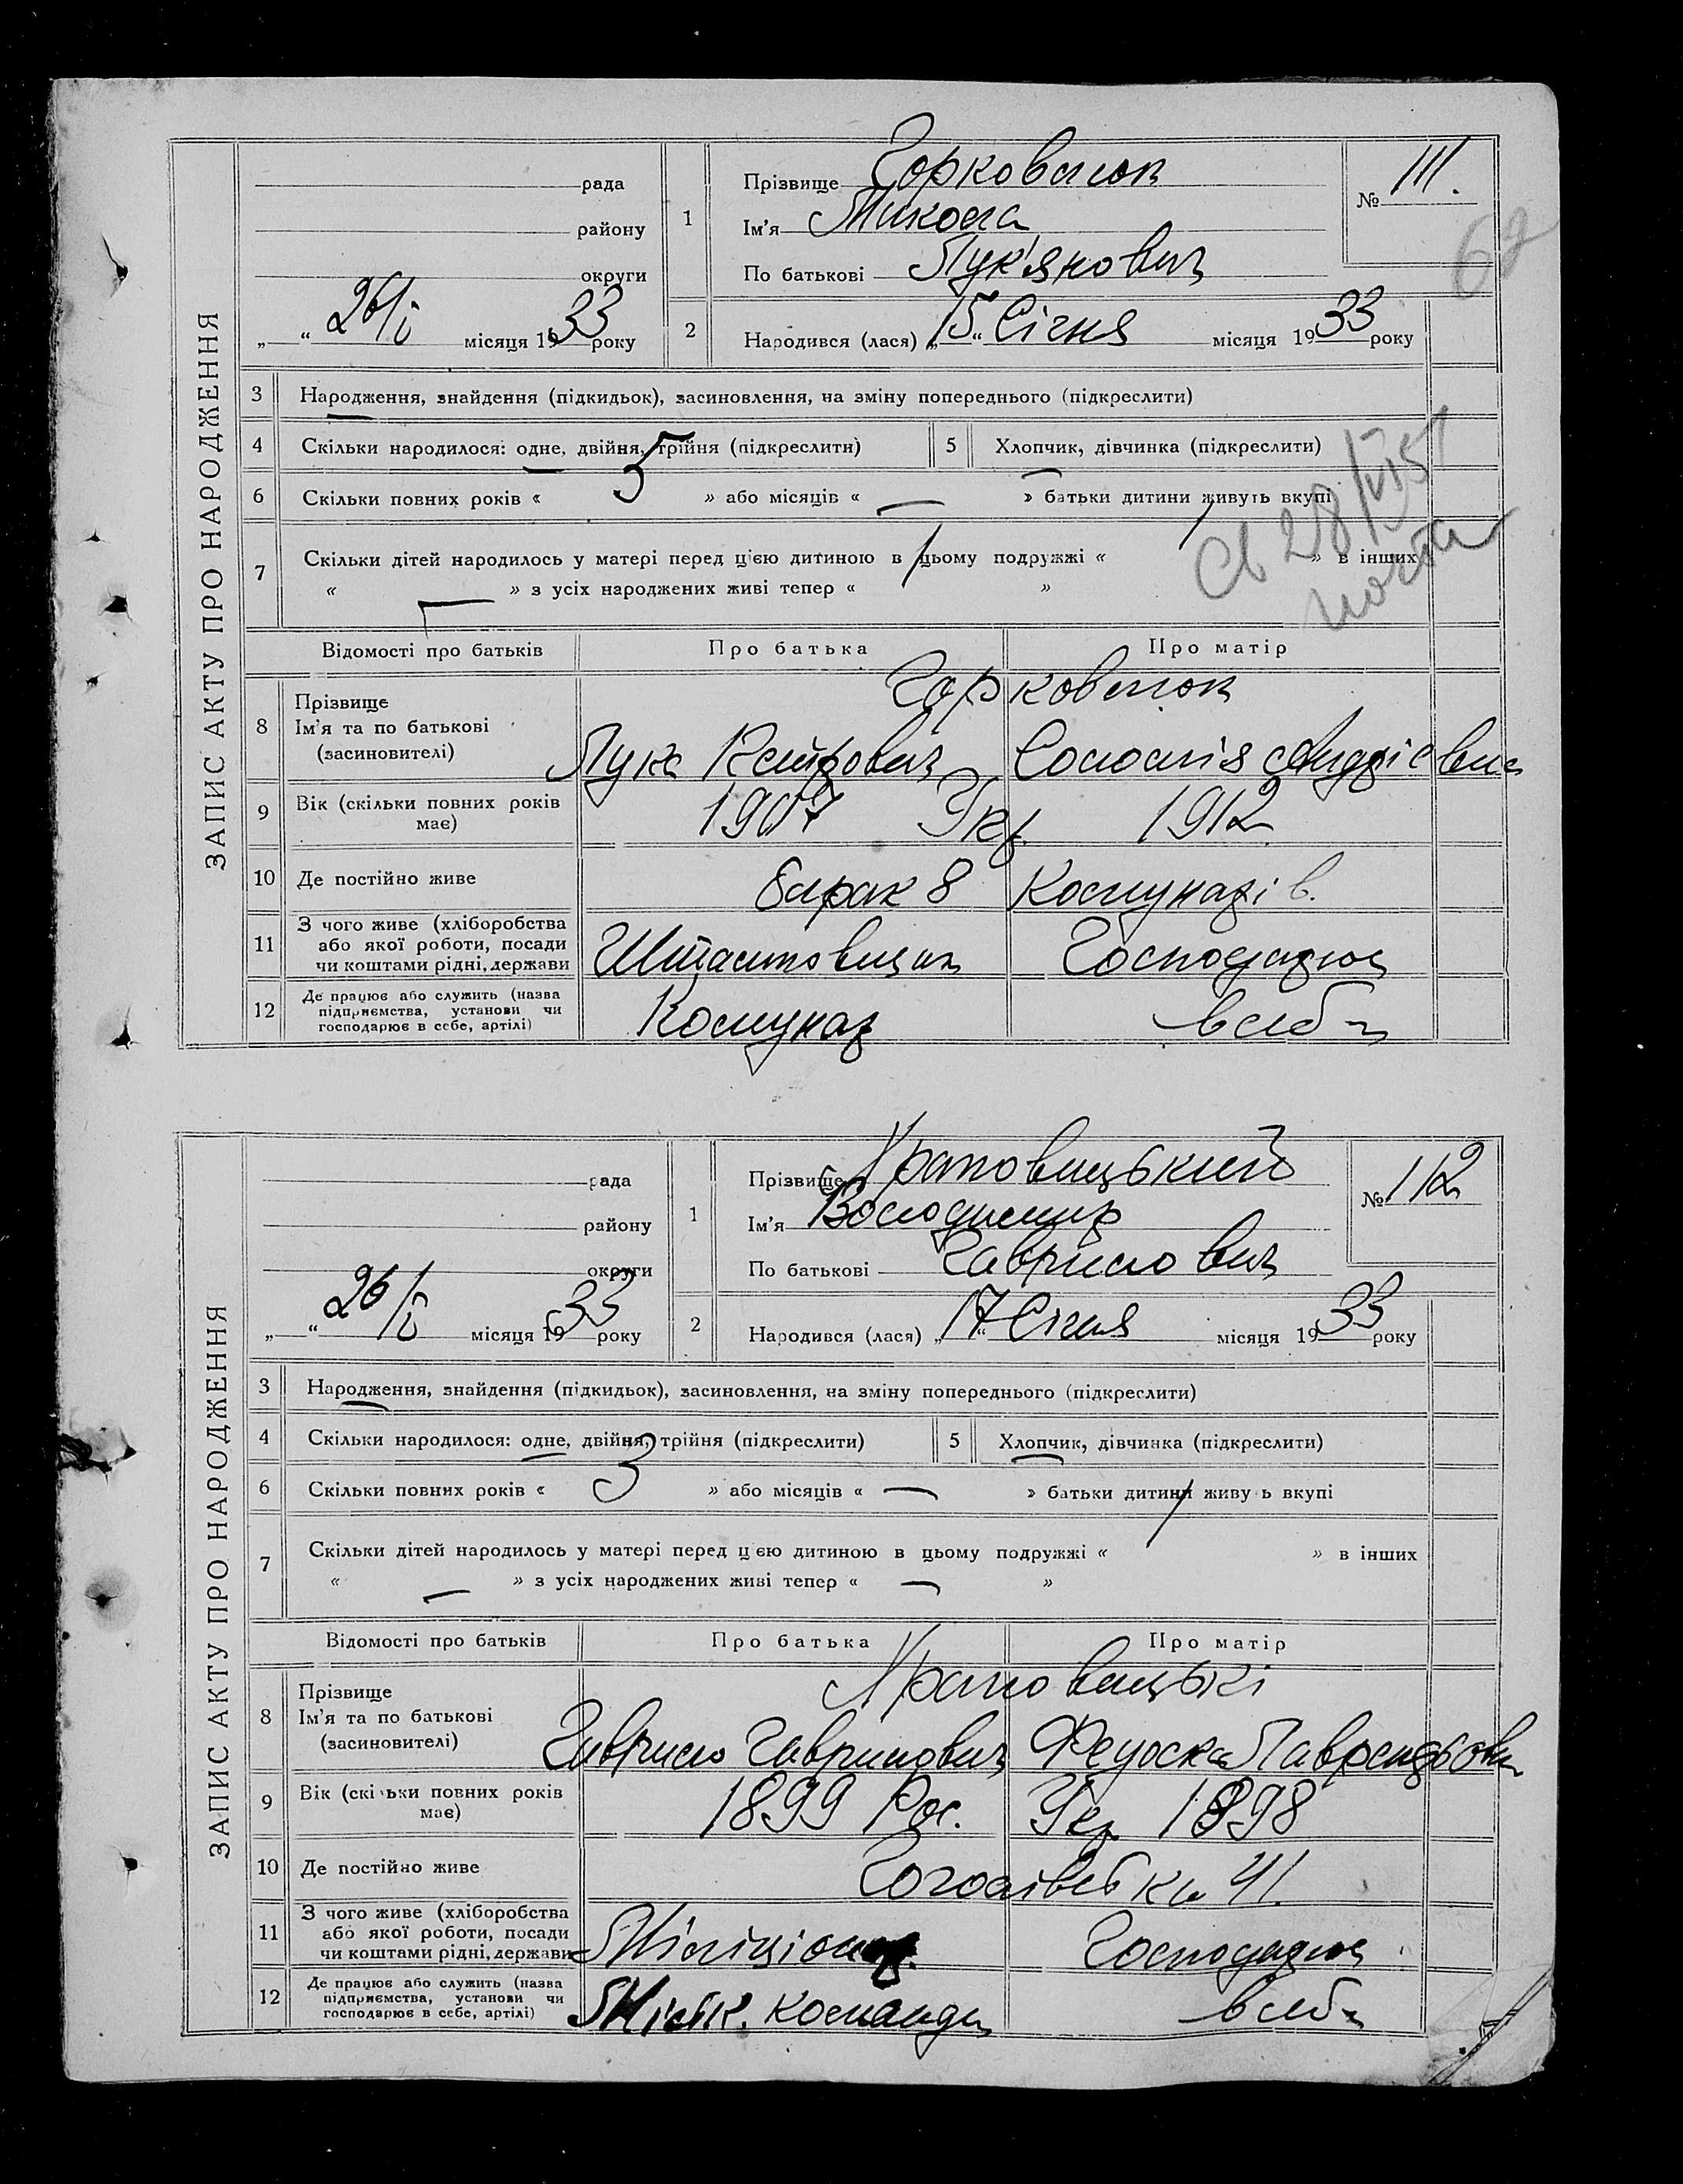 ЗАПИС АКТУ ПРО НАРОДЖЕННЯ
рада
району
округи
„ “ 26/I місяця 1933 року
1
Прізвище
Ім'я Микола
По батькові Лук'янович
№ 111.
62
2
Народився (лася) „15“ Січня місяця 1933 року
3 Народження, знайдення (підкидьок), засиновлення, на зміну попереднього (підкреслити)
4 Скільки народилося: одне, двійня, трійня (підкреслити) 5 Хлопчик, дівчинка (підкреслити)
6 Скільки повних років « 5 » або місяців « — » батьки дитини живуть вкупі
7 Скільки дітей народилось у матері перед цією дитиною в цьому подружжі « » в інших
« — » з усіх народжених живі тепер « »
Відомості про батьків Про батька Про матір
8 Прізвище
Ім'я та по батькові
(засиновителі)
Лука
9 Вік (скільки повних років має) 1907 Укр. 1912
10 Де постійно живе барак 8 Комунарів.
11 З чого живе (хліборобства або якої роботи, посади чи коштами рідні, держави
12 Де працює або служить (назва підприємства, установи чи господарює в себе, артілі) Комунар
ЗАПИС АКТУ ПРО НАРОДЖЕННЯ
рада
району
округи
„ “ 26/I місяця 1933 року
1
Прізвище Храповицький
Ім'я Володимир
По батькові Гаврилович
№ 112
2
Народився (лася) „17“ Січня місяця 1933 року
3 Народження, знайдення (підкидьок), засиновлення, на зміну попереднього (підкреслити)
4 Скільки народилося: одне, двійня, трійня (підкреслити) 5 Хлопчик, дівчинка (підкреслити)
6 Скільки повних років « 3 » або місяців « — » батьки дитини живуть вкупі
7 Скільки дітей народилось у матері перед цією дитиною в цьому подружжі « » в інших
« — » з усіх народжених живі тепер « — »
Відомості про батьків Про батька Про матір
8 Прізвище
Ім'я та по батькові
(засиновителі)
Храповицькі
Гаврило Гаврилович Феодоска
9 Вік (скільки повних років має) 1899 Рос. Укр 1898
10 Де постійно живе Гоголівська 41.
11 З чого живе (хліборобства або якої роботи, посади чи коштами рідні, держави Міліціонер.
12 Де працює або служить (назва підприємства, установи чи господарює в себе, артілі)